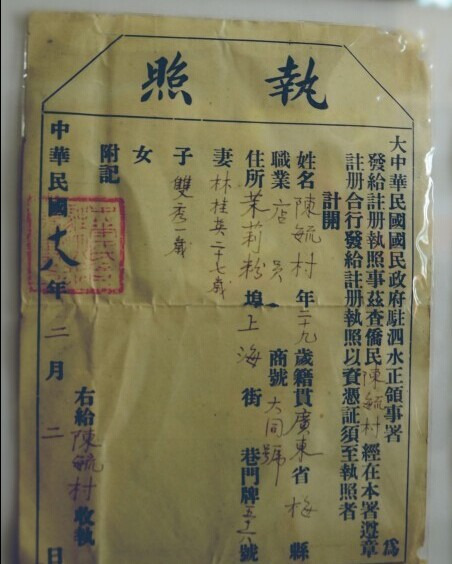 執照
大中華民國國民政府駐泗水正領事署 為
發給註册執照事茲查僑民陳毓村經在本署遵章
註册合行發給註册執照以資憑証須至執照者
計開
姓名陳毓村年二十九歲籍貫廣東省梅縣
職業店員 商號大同號
住所茉莉粉埠上海街 巷門牌五十八號
妻林桂英二十七歲
子雙秀一歲
女
附記
右給陳毓村收執
中華民國十八年二月二日